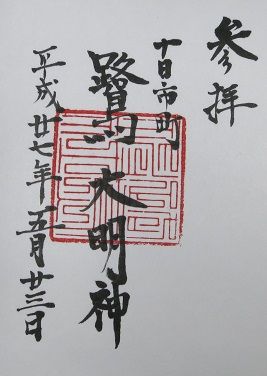 参拝
十日市町
鷺大明神
平成廿七年五月廿三日